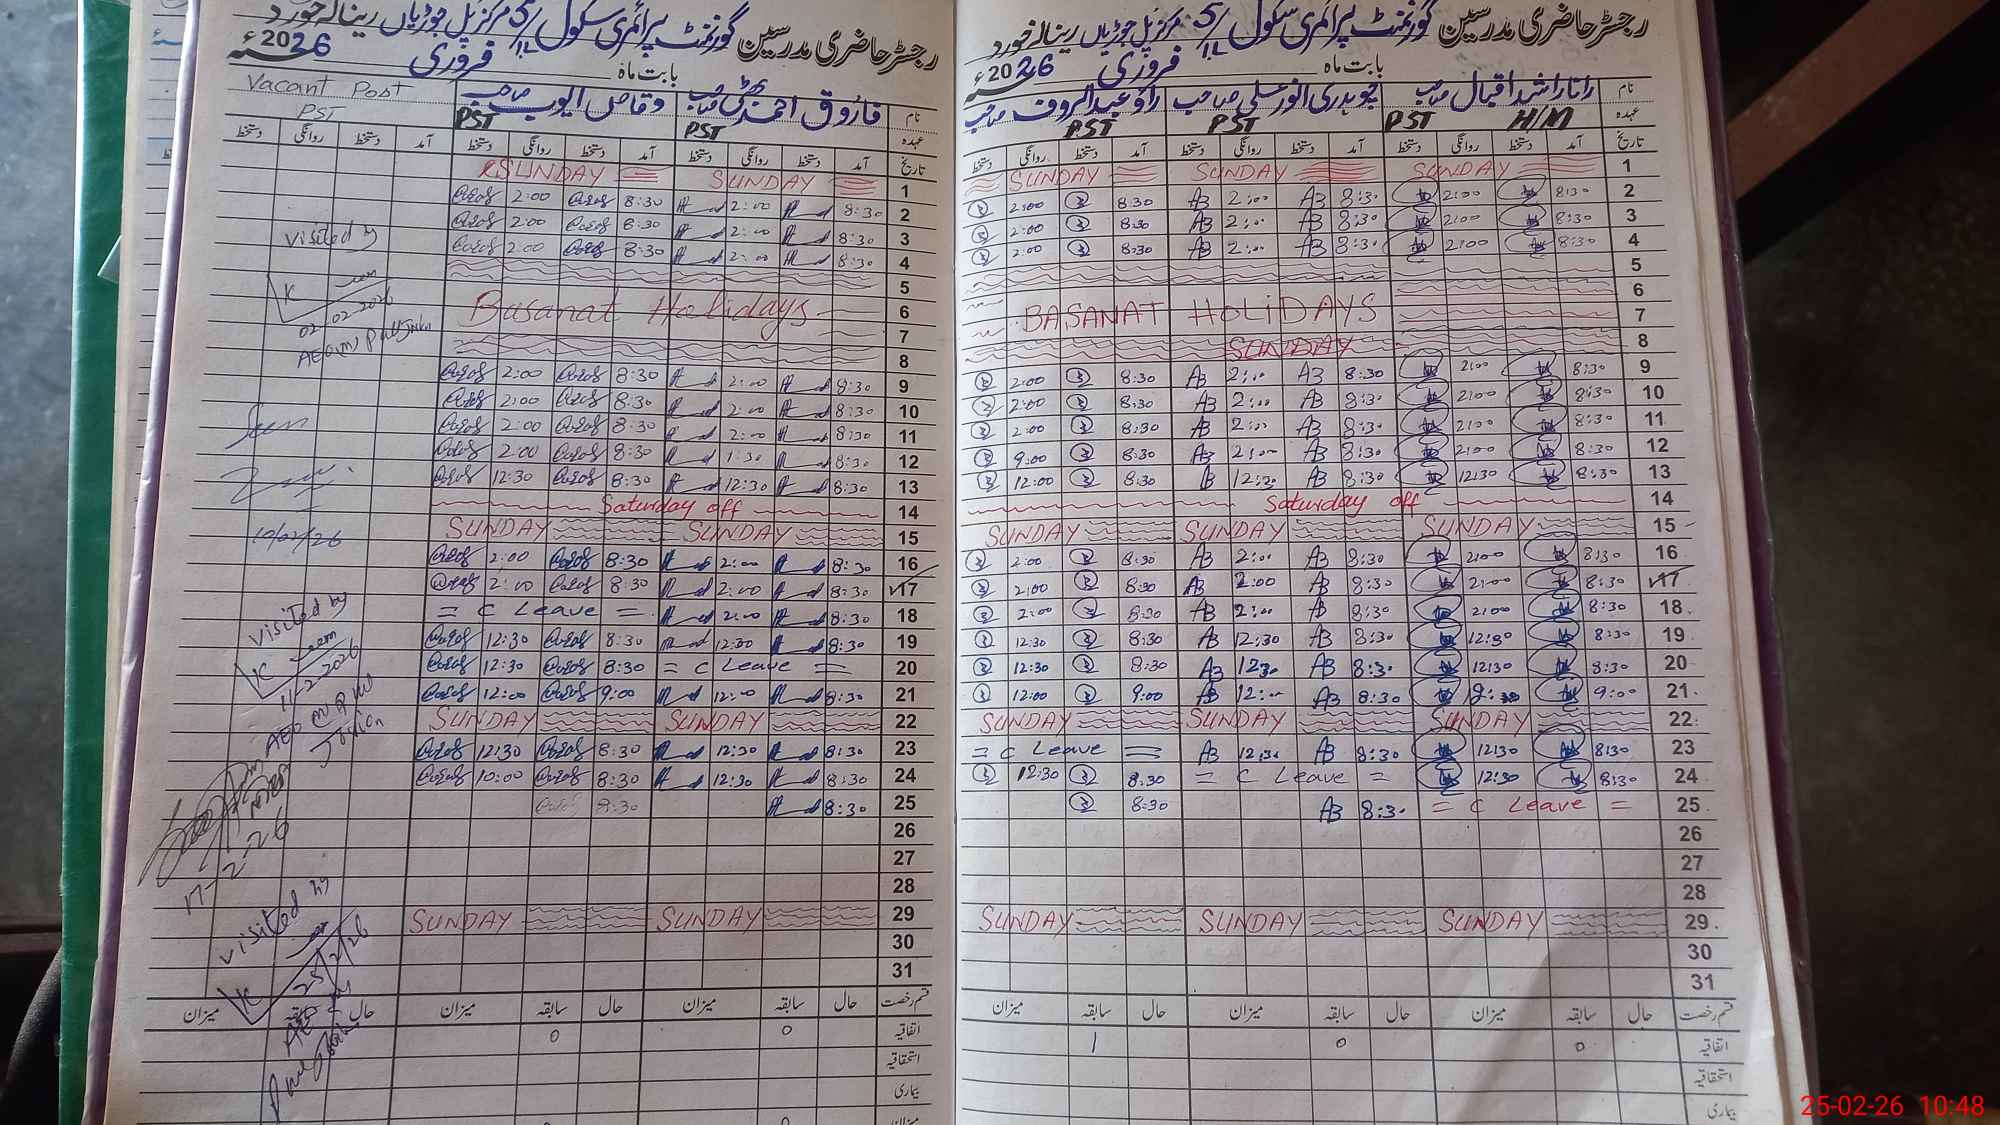 رجسٹر حاضری مدرسین گورنمنٹ پرائمری سکول 5/1L مرکز پل جوڑیاں رینالہ خورد
بابت ماہ فروری 2026ء
نام فاروق احمد بھٹی صاحب وقاص ایوب صاحب Vacant Post
عہدہ PST PST PST
تاریخ آمد دستخط روانگی دستخط آمد دستخط روانگی دستخط آمد دستخط روانگی دستخط
1 SUNDAY SUNDAY
2 8:30 2:00 8:30 2:00
3 8:30 2:00 8:30 2:00
4 8:30 2:00 8:30 2:00
5
6 Basanat Holidays
7
8
9 8:30 2:00 8:30 2:00
10 8:30 2:00 8:30 2:00
11 8:30 2:00 8:30 2:00
12 8:30 1:30 8:30 2:00
13 8:30 12:30 8:30 12:30
14 Saturday off
15 SUNDAY SUNDAY
16 8:30 2:00 8:30 2:00
17 8:30 2:00 8:30 2:00
18 8:30 2:00 = C Leave =
19 8:30 12:30 8:30 12:30
20 = C Leave = 8:30 12:30
21 8:30 12:00 9:00 12:00
22 SUNDAY SUNDAY
23 8:30 12:30 8:30 12:30
24 8:30 12:30 8:30 10:00
25 8:30 8:30
26
27
28
29 SUNDAY SUNDAY
30
31
قسم رخصت حال سابقہ میزان حال سابقہ میزان حال سابقہ میزان
اتفاقیہ 0 0
استحقاقیہ
بیماری
میزان
visited by
02-02-2026
10/02/26
visited by
11-2-2026
17-2-26
visited by
25/2/26
رجسٹر حاضری مدرسین گورنمنٹ پرائمری سکول 5/1L مرکز پل جوڑیاں رینالہ خورد
بابت ماہ فروری 2026ء
نام رانا راشد اقبال صاحب چوہدری انور علی صاحب راؤ عبدالروف صاحب
عہدہ H/M PST PST PST
تاریخ آمد دستخط روانگی دستخط آمد دستخط روانگی دستخط آمد دستخط روانگی دستخط
1 SUNDAY SUNDAY SUNDAY
2 8:30 2:00 8:30 2:00 8:30 2:00
3 8:30 2:00 8:30 2:00 8:30 2:00
4 8:30 2:00 8:30 2:00 8:30 2:00
5
6
7 BASANAT HOLIDAYS
8 SUNDAY
9 8:30 2:00 8:30 2:00 8:30 2:00
10 8:30 2:00 8:30 2:00 8:30 2:00
11 8:30 2:00 8:30 2:00 8:30 2:00
12 8:30 2:00 8:30 2:00 8:30 9:00
13 8:30 12:30 8:30 12:30 8:30 12:00
14 Saturday off
15 SUNDAY SUNDAY SUNDAY
16 8:30 2:00 8:30 2:00 8:30 2:00
17 8:30 2:00 8:30 2:00 8:30 2:00
18 8:30 2:00 8:30 2:00 8:30 2:00
19 8:30 12:30 8:30 12:30 8:30 12:30
20 8:30 12:30 8:30 12:30 8:30 12:30
21 9:00 8:30 12:00 9:00 12:00
22 SUNDAY SUNDAY SUNDAY
23 8:30 12:30 8:30 12:30 = C Leave =
24 8:30 12:30 = C Leave = 8:30 12:30
25 = C Leave = 8:30 8:30
26
27
28
29 SUNDAY SUNDAY SUNDAY
30
31
قسم رخصت حال سابقہ میزان حال سابقہ میزان حال سابقہ میزان
اتفاقیہ 0 0 1
استحقاقیہ
بیماری
25-02-26 10:48